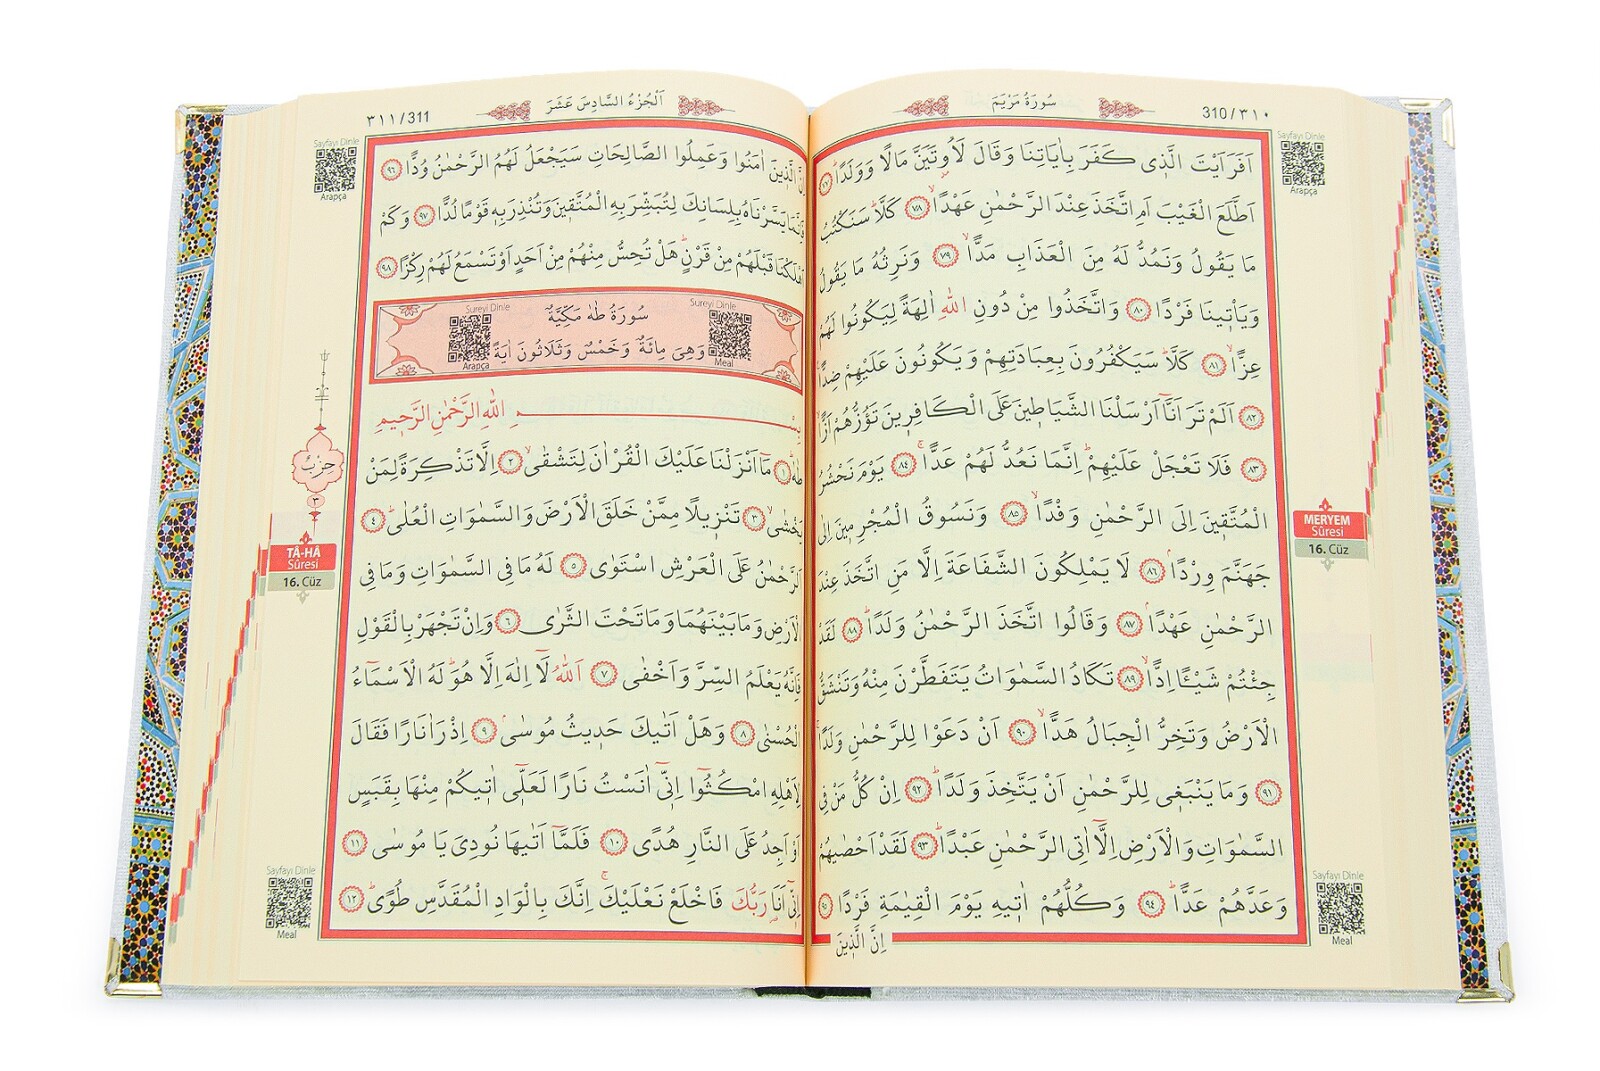 310/٣١٠
سُورَةُ مَرْيَمَ
Sayfayı Dinle
Arapça
اَفَرَاَيْتَ الَّذ۪ي كَفَرَ بِاٰيَاتِنَا وَقَالَ لَاُو۫تَيَنَّ مَالًا وَوَلَدًاۜ ﴿٧٧﴾
اَطَّلَعَ الْغَيْبَ اَمِ اتَّخَذَ عِنْدَ الرَّحْمٰنِ عَهْدًاۙ ﴿٧٨﴾ كَلَّاۜ سَنَكْتُبُ
مَا يَقُولُ وَنَمُدُّ لَهُ مِنَ الْعَذَابِ مَدًّاۙ ﴿٧٩﴾ وَنَرِثُهُ مَا يَقُولُ
وَيَأْت۪ينَا فَرْدًا ﴿٨٠﴾ وَاتَّخَذُوا مِنْ دُونِ اللّٰهِ اٰلِهَةً لِيَكُونُوا لَهُمْ
عِزًّاۙ ﴿٨١﴾ كَلَّاۜ سَيَكْفُرُونَ بِعِبَادَتِهِمْ وَيَكُونُونَ عَلَيْهِمْ ضِدًّا
﴿٨٢﴾ اَلَمْ تَرَ اَنَّٓا اَرْسَلْنَا الشَّيَاط۪ينَ عَلَى الْكَافِر۪ينَ تَؤُزُّهُمْ اَزًّاۙ
﴿٨٣﴾ فَلَا تَعْجَلْ عَلَيْهِمْۜ اِنَّمَا نَعُدُّ لَهُمْ عَدًّاۚ ﴿٨٤﴾ يَوْمَ نَحْشُرُ
الْمُتَّق۪ينَ اِلَى الرَّحْمٰنِ وَفْدًاۙ ﴿٨٥﴾ وَنَسُوقُ الْمُجْرِم۪ينَ اِلٰى
جَهَنَّمَ وِرْدًاۢ ﴿٨٦﴾ لَا يَمْلِكُونَ الشَّفَاعَةَ اِلَّا مَنِ اتَّخَذَ عِنْدَ
الرَّحْمٰنِ عَهْدًاۢ ﴿٨٧﴾ وَقَالُوا اتَّخَذَ الرَّحْمٰنُ وَلَدًاۜ ﴿٨٨﴾ لَقَدْ
جِئْتُمْ شَيْـًٔا اِدًّاۙ ﴿٨٩﴾ تَكَادُ السَّمٰوَاتُ يَتَفَطَّرْنَ مِنْهُ وَتَنْشَقُّ
الْاَرْضُ وَتَخِرُّ الْجِبَالُ هَدًّاۙ ﴿٩٠﴾ اَنْ دَعَوْا لِلرَّحْمٰنِ وَلَدًاۚ
﴿٩١﴾ وَمَا يَنْبَغ۪ي لِلرَّحْمٰنِ اَنْ يَتَّخِذَ وَلَدًاۜ ﴿٩٢﴾ اِنْ كُلُّ مَنْ فِي
السَّمٰوَاتِ وَالْاَرْضِ اِلَّٓا اٰتِي الرَّحْمٰنِ عَبْدًاۜ ﴿٩٣﴾ لَقَدْ اَحْصٰيهُمْ
وَعَدَّهُمْ عَدًّاۜ ﴿٩٤﴾ وَكُلُّهُمْ اٰت۪يهِ يَوْمَ الْقِيٰمَةِ فَرْدًا ﴿٩٥﴾
اِنَّ الَّذ۪ينَ
MERYEM
Sûresi
16. Cüz
Sayfayı Dinle
Meal
اَلْجُزْءُ السَّادِسَ عَشَرَ
٣١١/311
Sayfayı Dinle
Arapça
اِنَّ الَّذ۪ينَ اٰمَنُوا وَعَمِلُوا الصَّالِحَاتِ سَيَجْعَلُ لَهُمُ الرَّحْمٰنُ وُدًّا ﴿٩٦﴾
فَاِنَّمَا يَسَّرْنَاهُ بِلِسَانِكَ لِتُبَشِّرَ بِهِ الْمُتَّق۪ينَ وَتُنْذِرَ بِه۪ قَوْمًا لُدًّا ﴿٩٧﴾ وَكَمْ
اَهْلَكْنَا قَبْلَهُمْ مِنْ قَرْنٍۜ هَلْ تُحِسُّ مِنْهُمْ مِنْ اَحَدٍ اَوْ تَسْمَعُ لَهُمْ رِكْزًا ﴿٩٨﴾
Sureyi Dinle
سُورَةُ طٰهٰ مَكِّيَّةٌ
Sureyi Dinle
وَهِيَ مِائَةٌ وَخَمْسٌ وَثَلَاثُونَ اٰيَةً
Meal
Arapça
بِسْمِ اللّٰهِ الرَّحْمٰنِ الرَّح۪يمِ
طٰهٰۜ ﴿١﴾ مَٓا اَنْزَلْنَا عَلَيْكَ الْقُرْاٰنَ لِتَشْقٰىۙ ﴿٢﴾ اِلَّا تَذْكِرَةً لِمَنْ
يَخْشٰىۙ ﴿٣﴾ تَنْز۪يلًا مِمَّنْ خَلَقَ الْاَرْضَ وَالسَّمٰوَاتِ الْعُلٰىۜ ﴿٤﴾
اَلرَّحْمٰنُ عَلَى الْعَرْشِ اسْتَوٰى ﴿٥﴾ لَهُ مَا فِي السَّمٰوَاتِ وَمَا فِي
الْاَرْضِ وَمَا بَيْنَهُمَا وَمَا تَحْتَ الثَّرٰى ﴿٦﴾ وَاِنْ تَجْهَرْ بِالْقَوْلِ
فَاِنَّهُ يَعْلَمُ السِّرَّ وَاَخْفٰى ﴿٧﴾ اَللّٰهُ لَٓا اِلٰهَ اِلَّا هُوَۜ لَهُ الْاَسْمَٓاءُ
الْحُسْنٰى ﴿٨﴾ وَهَلْ اَتٰيكَ حَد۪يثُ مُوسٰىۢ ﴿٩﴾ اِذْ رَاٰ نَارًا فَقَالَ
لِاَهْلِهِ امْكُثُٓوا اِنّ۪ٓي اٰنَسْتُ نَارًا لَعَلّ۪ٓي اٰت۪يكُمْ مِنْهَا بِقَبَسٍ
اَوْ اَجِدُ عَلَى النَّارِ هُدًى ﴿١٠﴾ فَلَمَّٓا اَتٰيهَا نُودِيَ يَا مُوسٰى ﴿١١﴾
اِنّ۪ٓي اَنَا۬ رَبُّكَ فَاخْلَعْ نَعْلَيْكَۚ اِنَّكَ بِالْوَادِ الْمُقَدَّسِ طُوًىۜ ﴿١٢﴾
حِزْبُ
٣
TÂ-HÂ
Sûresi
16. Cüz
Sayfayı Dinle
Meal